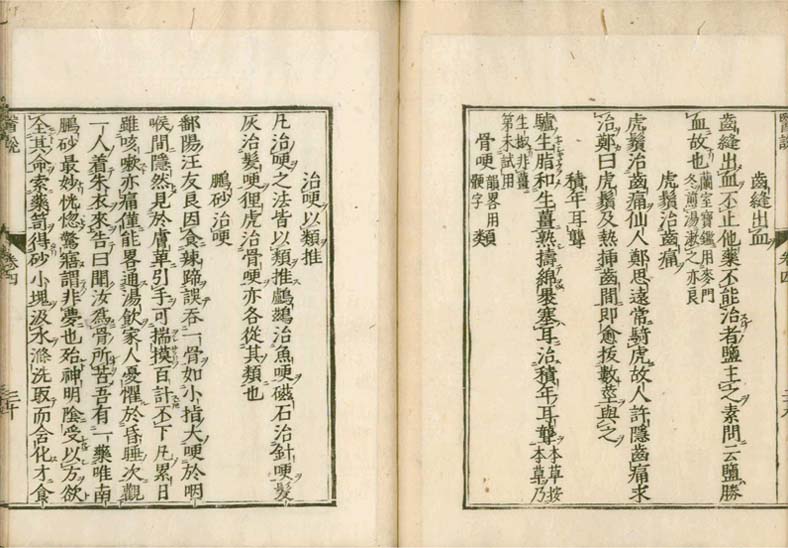 齒縫出血
齒縫出血不止他藥不能治者鹽主之素問云鹽勝
血故也蘭室寶鑑用麥門
冬煎湯漱之亦良
虎鬚治齒痛
虎鬚治齒痛仙人鄭思遠常騎虎故人許隱齒痛求
治鄭曰虎鬚及熱挿齒間即愈拔數莖與之
積年耳聾
驢生脂和生薑熟擣綿裹塞耳治積年耳聾本草按
本草乃
生椒非薑
第未試用
骨哽韻畧用
骾字類
治哽以類推
凡治哽之法皆以類推鸕鷀治魚哽磁石治針哽髮
灰治髮哽狸虎治骨哽亦各從其類也
鵬砂治哽
鄱陽汪友良因食辣蹄誤吞一骨如小指大哽於咽
喉間隱然見於膚革引手可揣摸百計不下凡累日
雖咳嗽亦痛僅能畧通湯飲家人憂懼於昏睡次觀
一人着朱衣來告曰聞汝為骨所苦吾有一藥唯南
鵬砂最妙恍惚驚寤謂非夢也殆神明陰受以方欲
全其命索藥笥得砂小塊汲水滌洗取而含化才食
醫說
卷四